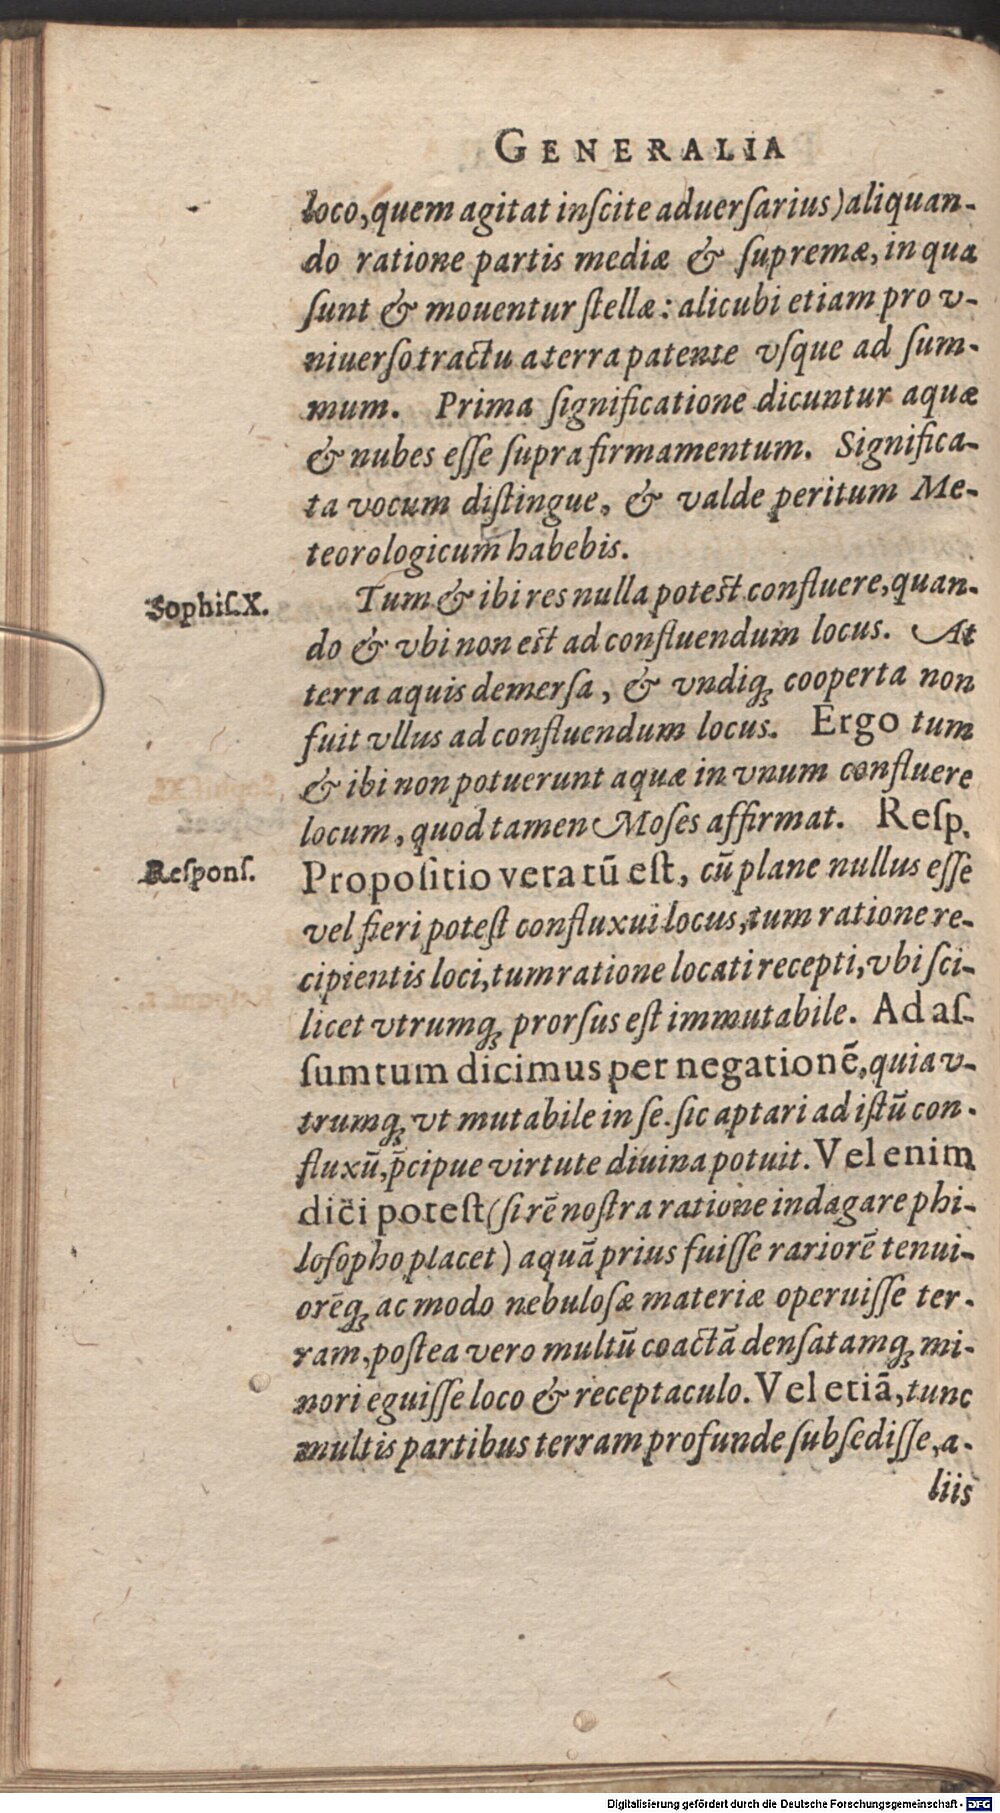 GENERALIA
loco, quem agitat inſcite aduerſarius) aliquan-
do ratione partis mediæ & ſupremæ, in qua
ſunt & mouentur ſtellæ: alicubi etiam pro v-
niuerſo tractu a terra patente vſque ad ſum-
mum. Prima ſignificatione dicuntur aquæ
& nubes eſſe ſupra firmamentum. Significa-
ta vocum diſtingue, & valde peritum Me-
teorologicum habebis.
Sophiſ. X.
Tum & ibi res nulla poteſt confluere, quan-
do & vbi non eſt ad confluendum locus. At
terra aquis demerſa, & vndiqꝫ cooperta non
fuit vllus ad confluendum locus. Ergo tum
& ibi non potuerunt aquæ in vnum confluere
locum, quod tamen Moſes affirmat. Reſp.
Reſponſ.
Propoſitio vera tū eſt, cū plane nullus eſſe
vel fieri poteſt confluxui locus, tum ratione re-
cipientis loci, tum ratione locati recepti, vbi ſci-
licet vtrumqꝫ prorſus eſt immutabile. Ad aſ-
ſumtum dicimus per negationē, quia v-
trumqꝫ vt mutabile in ſe. ſic aptari ad iſtū con-
fluxū, p̄cipue virtute diuina potuit. Vel enim
dici poteſt (ſi rē noſtra ratione indagare phi-
loſopho placet) aquā prius fuiſſe rariorē tenui-
orēqꝫ ac modo nebuloſæ materiæ operuiſſe ter-
ram, poſtea vero multū coactā denſatamqꝫ mi-
nori eguiſſe loco & receptaculo. Vel etiā, tunc
multis partibus terram profunde ſubſediſſe, a-
liis
Digitalisierung gefördert durch die Deutsche Forschungsgemeinschaft - DFG